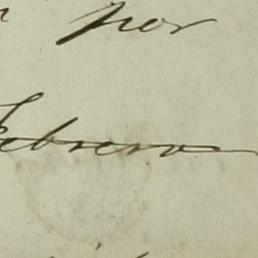 por
Febrero